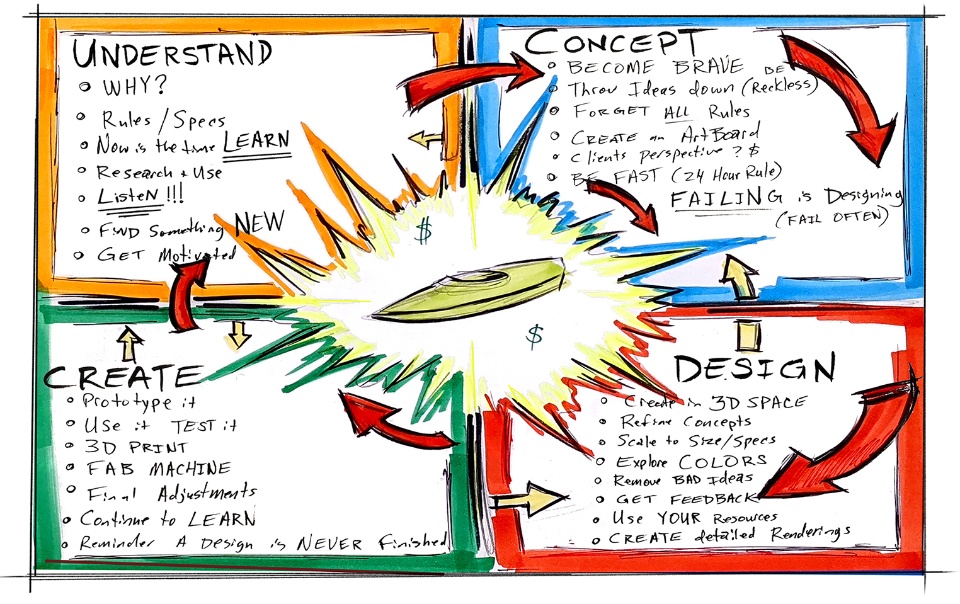 UNDERSTAND
WHY?
Rules/Specs
Now is the time LEARN
Research + Use
Listen!!!
FIND Something NEW
GET Motivated
CONCEPT
BECOME BRAVE
Throw Ideas down (BE Reckless)
FORGET ALL Rules
CREATE an ArtBoard
Clients perspective? $
BE FAST (24 Hour Rule)
FAILING is Designing
(FAIL OFTEN)
$
$
CREATE
Prototype it
Use it TEST it
3D PRINT
FAB MACHINE
Final Adjustments
Continue to LEARN
Reminder A Design is NEVER Finished
DESIGN
Create in 3D SPACE
Refine Concepts
Scale to Size/Specs
Explore COLORS
Remove BAD Ideas
GET FEEDBACK
Use YOUR Resources
CREATE detailed Renderings